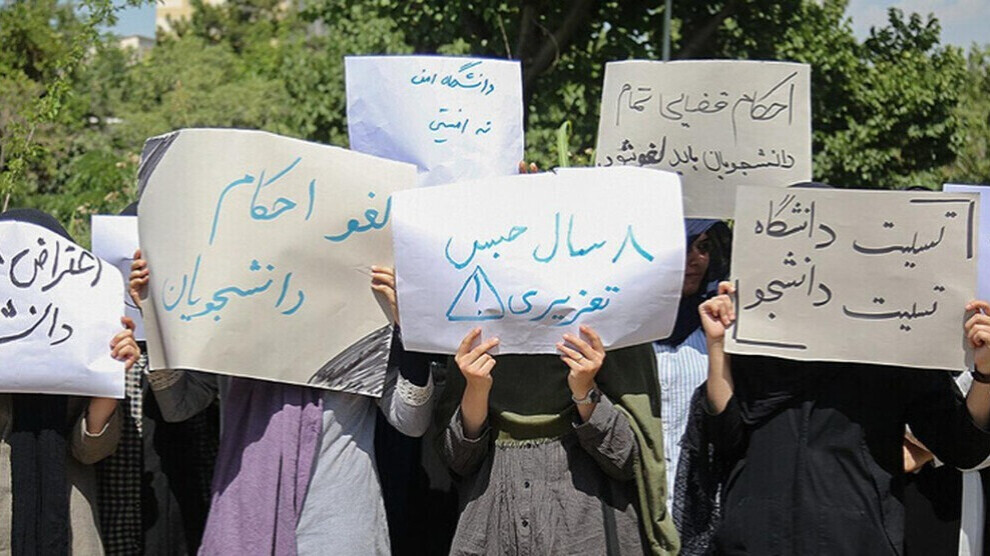 دانشگاه امن
نه امنیتی
احکام قضایی تمام
دانشجویان باید لغو شود.
لغو احکام
دانشجویان
۸ سال حبس
تعزیری !
تسلیت دانشگاه
تسلیت دانشجو
اعتراض